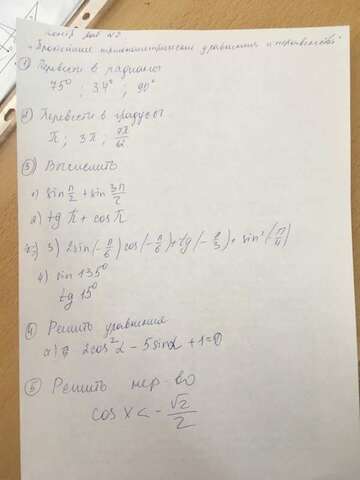 "Простейшие тригонометрические уравнения и неравенства"
① Перевести в радианы
75° ; 34° ; 90°
② Перевести в градусы
π ; 3π ;
③ Вычислить
1) sin π/2 + sin 3π/2
2) tg π + cos π
3) 2sin(-π/6) cos(-π/6) + tg(-π/3) + sin²(π/4)
4) sin 135°
tg 15°
④ Решить уравнения
а) 2cos²α - 5sinα + 1 = 0
⑤ Решить нер-во
cos x < - √2/2